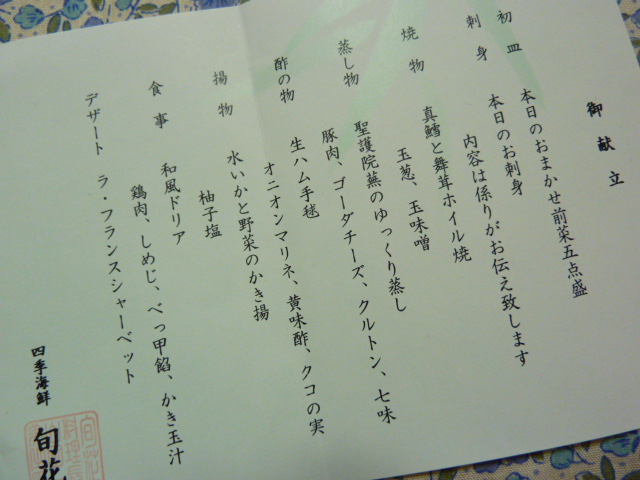 御献立
初皿 本日のおまかせ前菜五点盛
刺身 本日のお刺身
内容は係りがお伝え致します
焼物 真鱈と舞茸ホイル焼
玉葱、玉味噌
蒸し物 聖護院蕪のゆっくり蒸し
豚肉、ゴーダチーズ、クルトン、七味
酢の物 生ハム手毬
オニオンマリネ、黄味酢、クコの実
揚物 水いかと野菜のかき揚
柚子塩
食事 和風ドリア
鶏肉、しめじ、べっ甲餡、かき玉汁
デザート ラ・フランスシャーベット
四季海鮮 旬花